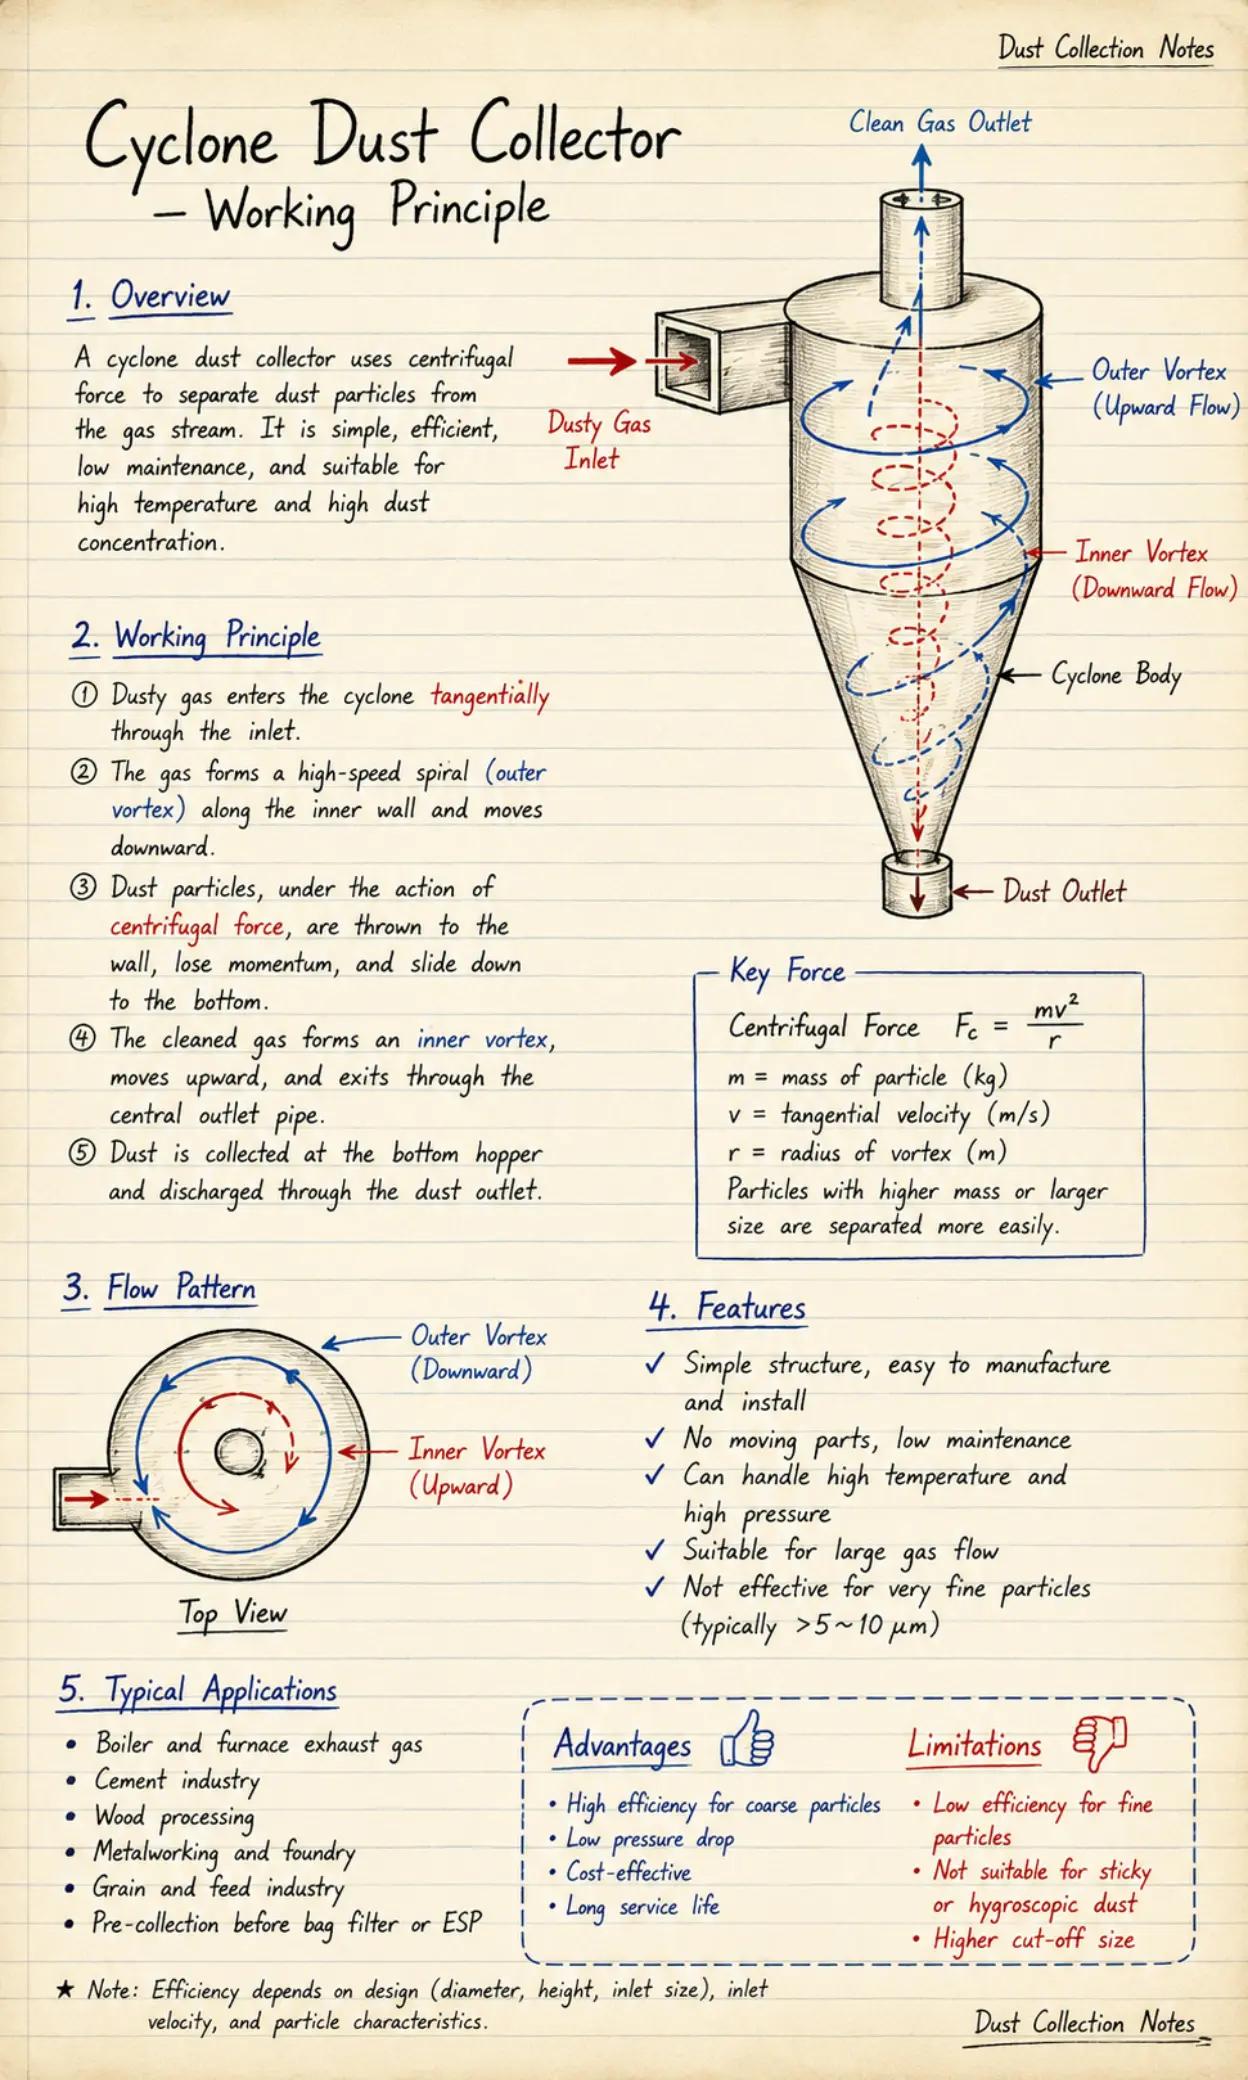 Dust Collection Notes
Cyclone Dust Collector
— Working Principle
1. Overview
A cyclone dust collector uses centrifugal
force to separate dust particles from
the gas stream. It is simple, efficient,
low maintenance, and suitable for
high temperature and high dust
concentration.
Clean Gas Outlet
Dusty Gas
Inlet
Outer Vortex
(Upward Flow)
Inner Vortex
(Downward Flow)
Cyclone Body
Dust Outlet
2. Working Principle
① Dusty gas enters the cyclone tangentially
through the inlet.
② The gas forms a high-speed spiral (outer
vortex) along the inner wall and moves
downward.
③ Dust particles, under the action of
centrifugal force, are thrown to the
wall, lose momentum, and slide down
to the bottom.
④ The cleaned gas forms an inner vortex,
moves upward, and exits through the
central outlet pipe.
⑤ Dust is collected at the bottom hopper
and discharged through the dust outlet.
Key Force
Centrifugal Force Fc = mv² / r
m = mass of particle (kg)
v = tangential velocity (m/s)
r = radius of vortex (m)
Particles with higher mass or larger
size are separated more easily.
3. Flow Pattern
Outer Vortex
(Downward)
Inner Vortex
(Upward)
Top View
4. Features
✓ Simple structure, easy to manufacture
and install
✓ No moving parts, low maintenance
✓ Can handle high temperature and
high pressure
✓ Suitable for large gas flow
✓ Not effective for very fine particles
(typically >5~10 μm)
5. Typical Applications
• Boiler and furnace exhaust gas
• Cement industry
• Wood processing
• Metalworking and foundry
• Grain and feed industry
• Pre-collection before bag filter or ESP
Advantages
• High efficiency for coarse particles
• Low pressure drop
• Cost-effective
• Long service life
Limitations
• Low efficiency for fine
particles
• Not suitable for sticky
or hygroscopic dust
• Higher cut-off size
★ Note: Efficiency depends on design (diameter, height, inlet size), inlet
velocity, and particle characteristics.
Dust Collection Notes